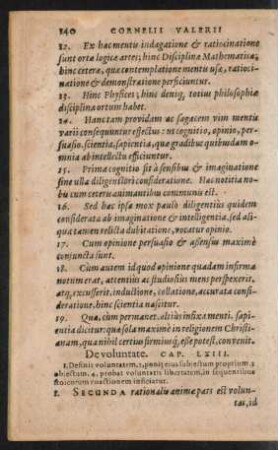 140 CORNELII VALERII
12. Ex hac mentis indagatione & ratiocinatione
sunt ortæ logicæ artes; hinc Disciplinæ Mathematicæ,
hinc ceteræ, quæ contemplatione mentis usæ, ratioci-
natione & demonstratione perficiuntur.
13. Hinc Physices, hinc deniq, totius philosophiæ
disciplina ortum habet.
14. Hanc tam providam ac sagacem vim mentis
varii consequuntur effectus: ut cognitio, opinio, per-
suasio, scientia, sapientia, quæ gradibus quibusdam o-
mnia ab intellectu efficiuntur.
15. Prima cognitio fit à sensibus & imaginatione
sine ulla diligentiori consideratione. Hæc notitia no-
bis cum ceteris animantibus communis est.
16. Sed hæc ipsa mox paulò diligentius quidem
considerata ab imaginatione & intelligentia, sed ali-
qua tamen relicta dubitatione, vocatur opinio.
17. Cum opinione persuasio & assensus maximè
conjuncta sunt.
18. Cùm autem id quod opinione quadam infirma
motum erat, attentius ac studiosius mens perspexerit,
atq, excusserit, inductione, collatione, accurata consi-
deratione, hinc scientia nascitur.
19. Quæ, cùm permanet altius infixa menti, sapi-
entia dicitur: quæ sola maximè in religionem Christi-
anam, qua nihil certius firmiusq, esse potest, convenit.
De voluntate. CAP. LXIII.
1. Definit voluntatem, 2. ponit ejus subjectum proprium, 3
objectum. 4. probat voluntatis libertatem, in sequentibus
stoicorum coactionem inficiatur.
1. SECUNDA rationalis animæ pars est volun-
tas, id